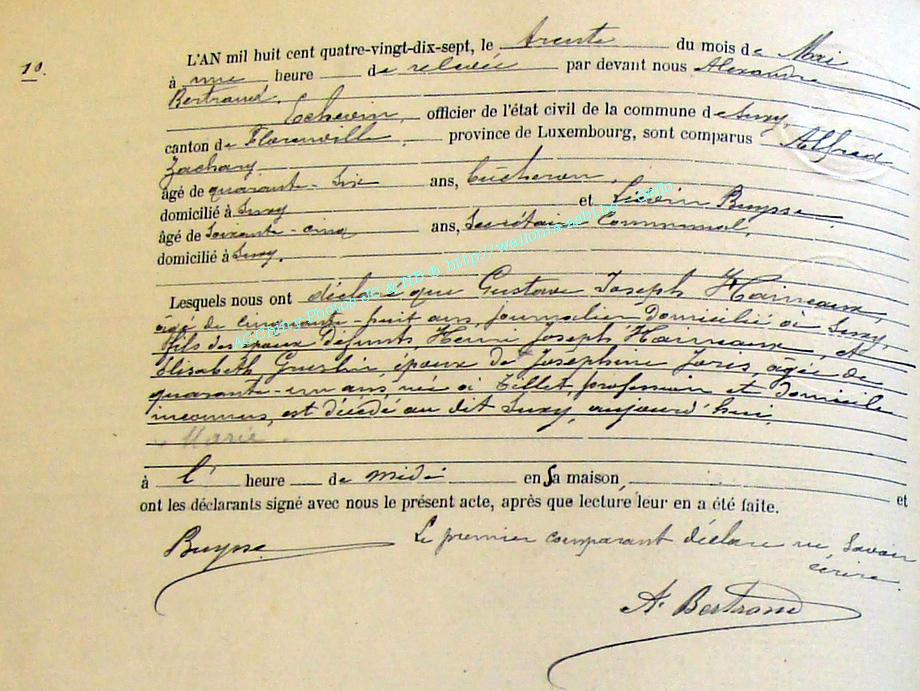 10.
L'AN mil huit cent quatre-vingt-dix-sept, le trente du mois de Mai
à une heure de relevée par devant nous Alexandre
Bertrand.
Echevin, officier de l'état civil de la commune de Suxy
canton de Florenville province de Luxembourg, sont comparus Alfred
Zachary
âgé de quarante-six ans, bucheron,
domicilié à Suxy et Buysse
âgé de soixante-cinq ans, Secrétaire Communal,
domicilié à Suxy.
Lesquels nous ont déclaré que Gustave Joseph Hameaux,
âgé de cinquante huit ans, journalier domicilié à Suxy
fils des époux défunts Henri Joseph Hameaux, et
Elisabeth époux de Joséphine Joris, âgée de
quarante-un ans, née à Tillet, profession et domicile
inconnus, est décédé au dit Suxy, aujourd'hui,
Marié
à l' heure de midi en sa maison, et
ont les déclarants signé avec nous le présent acte, après que lecture leur en a été faite.
Buysse Le premier comparant déclare ne savoir
écrire
A. Bertrand